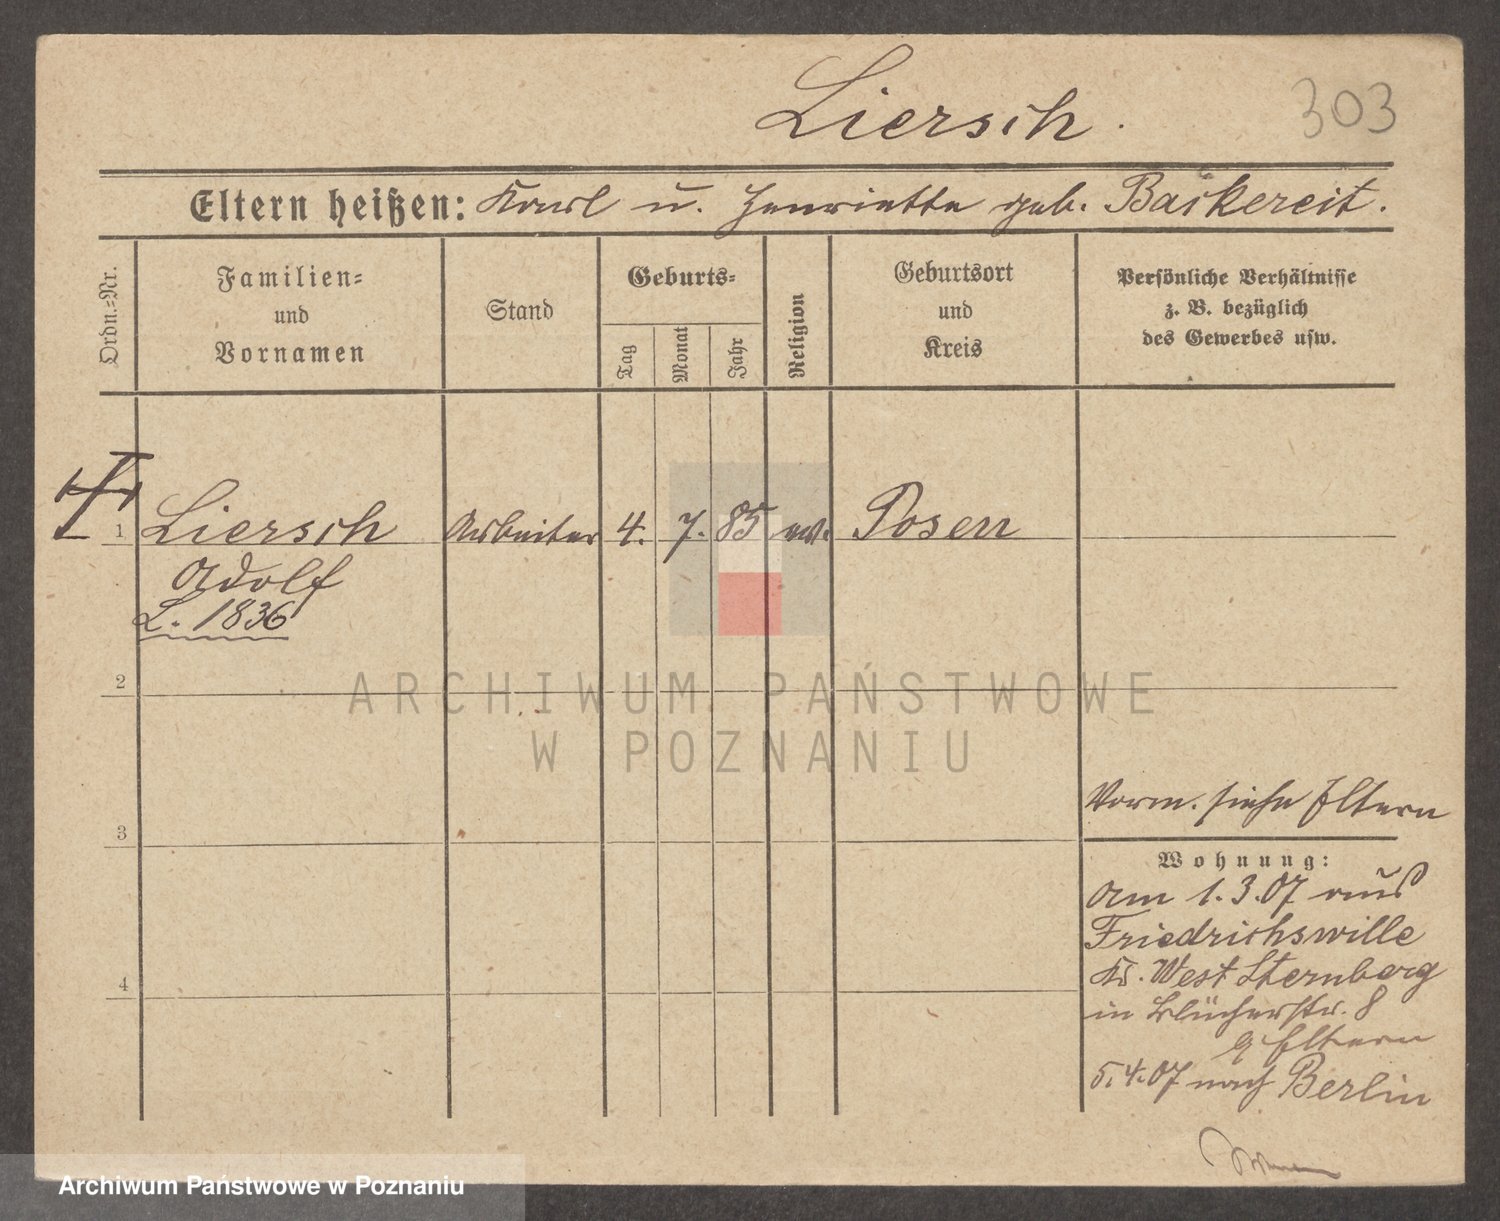 Liersch.
303
Eltern heißen: Karl u. Henriette geb. Baskereit.
Ordn.-Nr.
Familien-
und
Vornamen
Stand
Geburts-
Tag
Monat
Jahr
Religion
Geburtsort
und
Kreis
Persönliche Verhältnisse
z. B. bezüglich
des Gewerbes usw.
1 Liersch Arbeiter 4. 7. 85 ev. Posen
Adolf
L. 1836
2
3
4
Vorm. siehe Eltern
Wohnung:
am 1.3.07 aus
Friedrichswille
Kr. West Sternberg
in Blücherstr. 8
Eltern
5.4.07 nach Berlin
ARCHIWUM PAŃSTWOWE
W POZNANIU
Archiwum Państwowe w Poznaniu